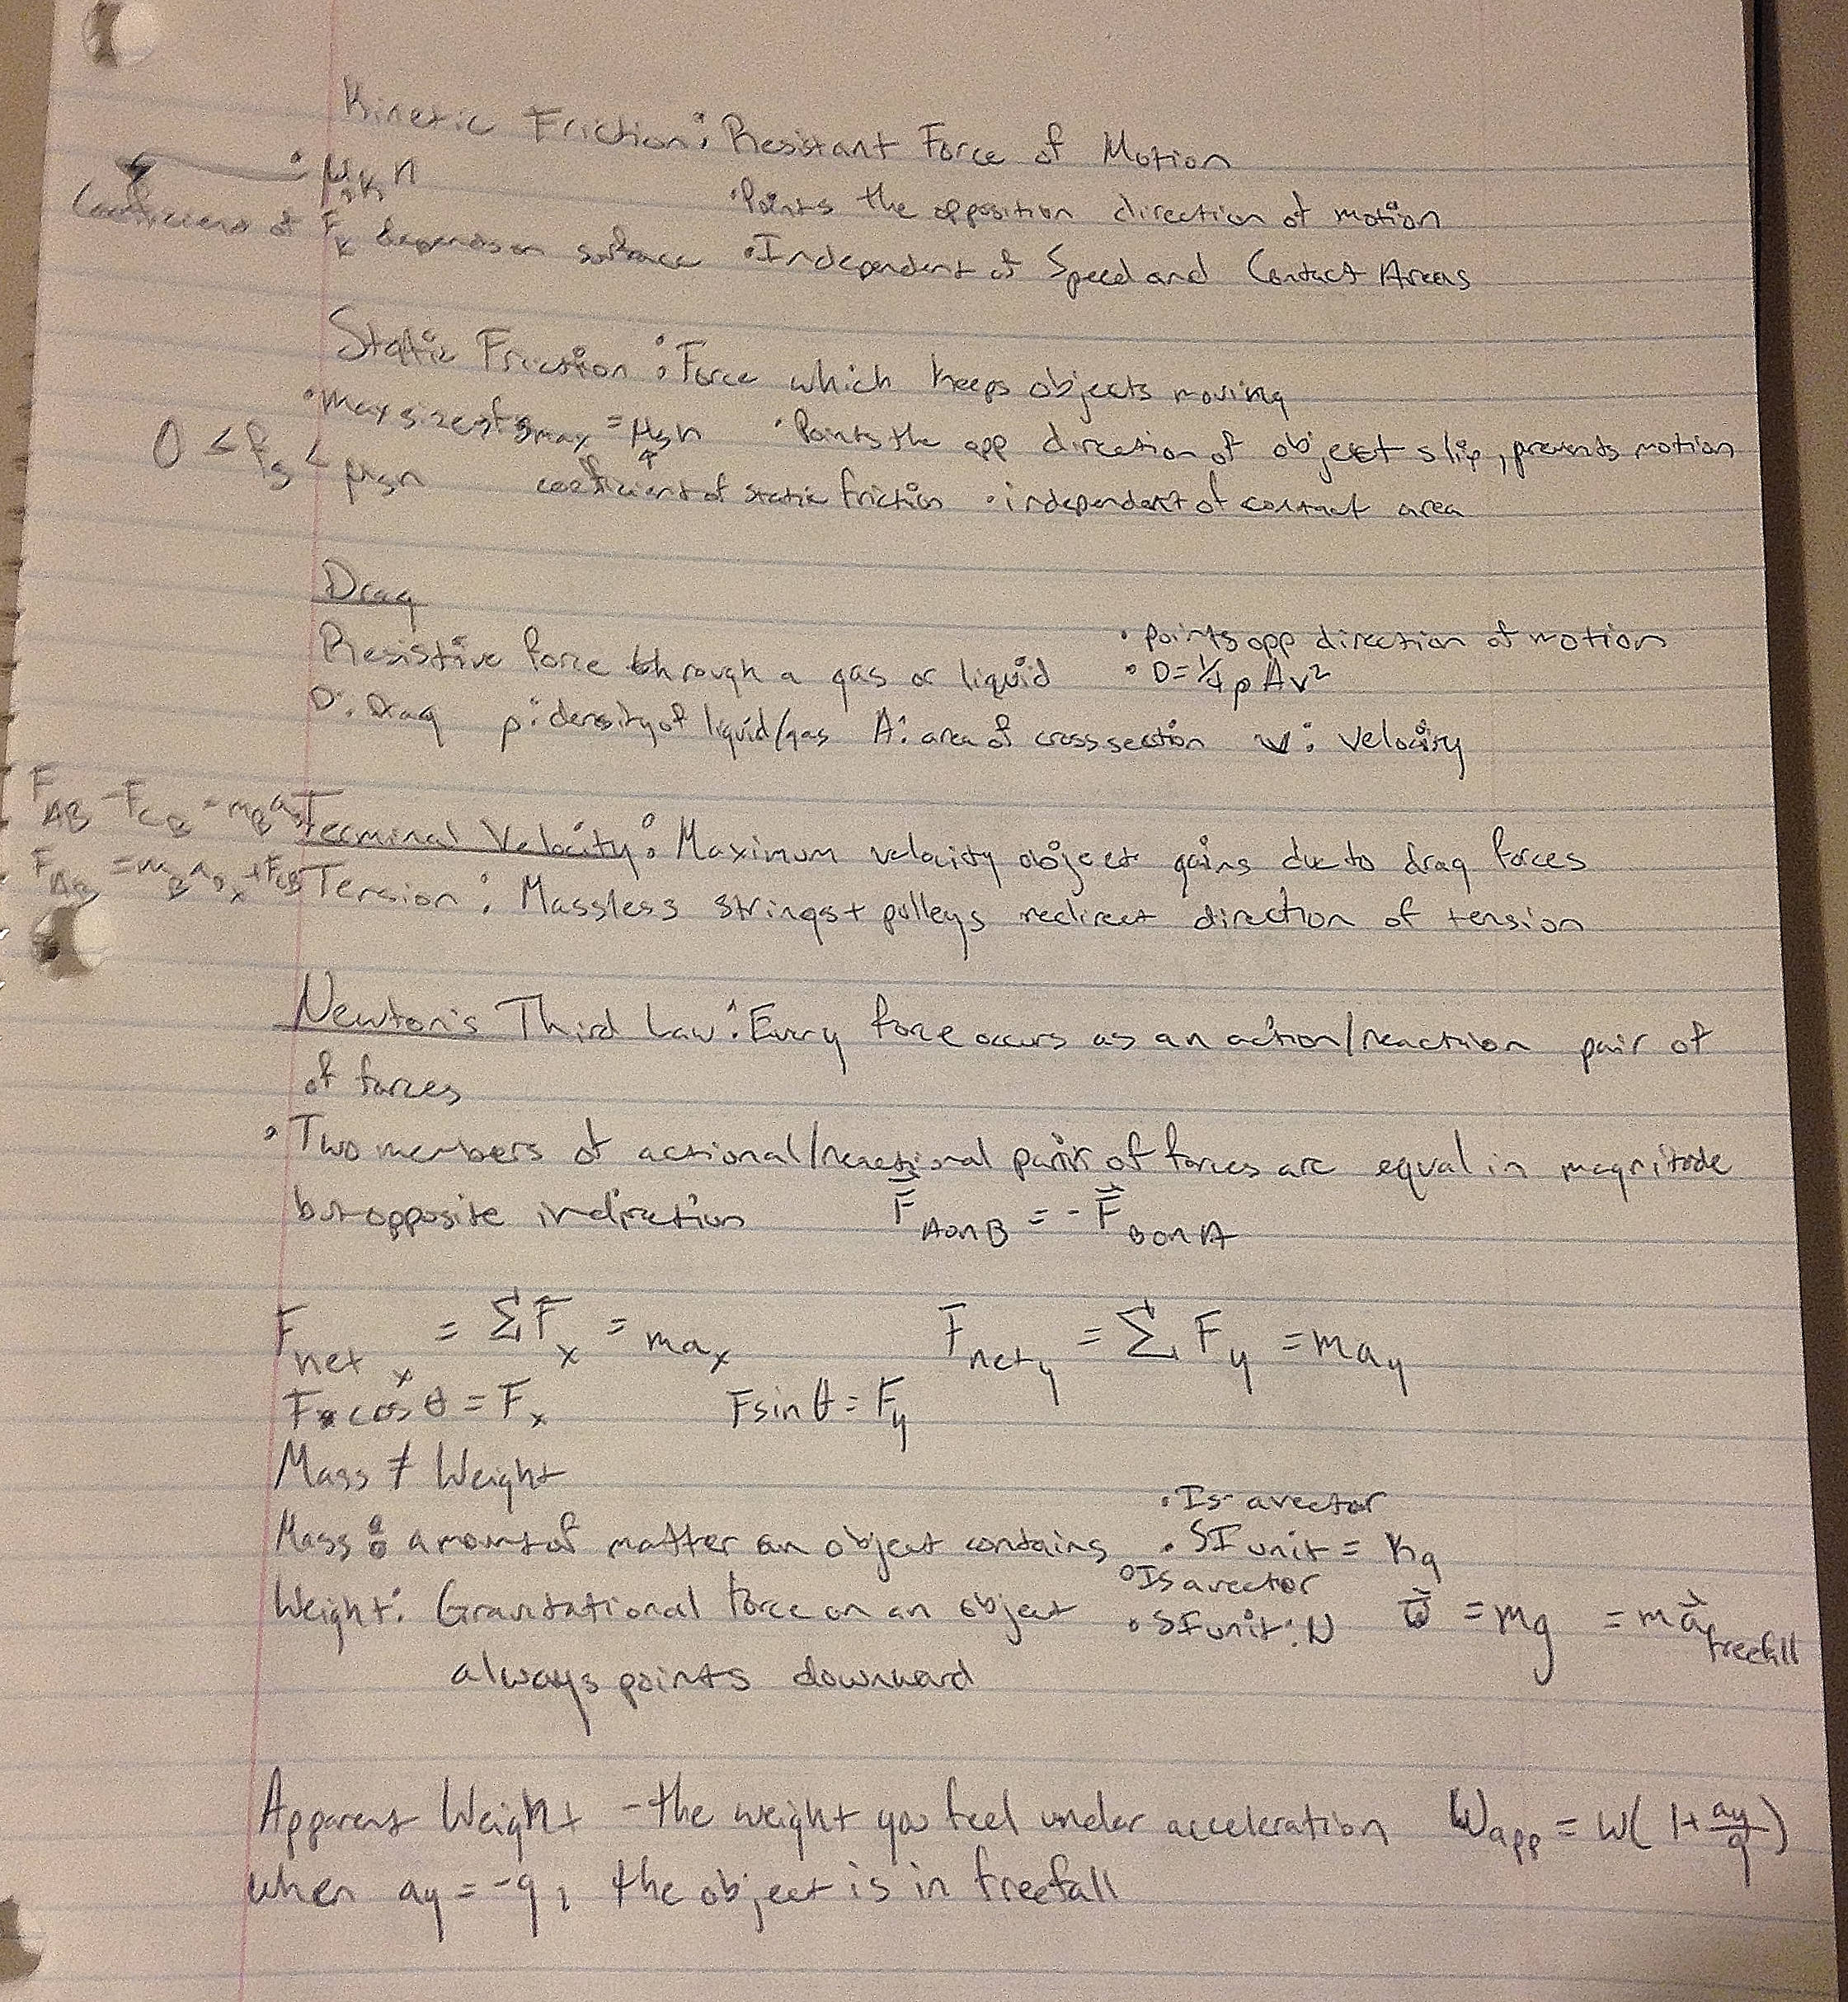 Kinetic Friction: Resistant Force of Motion
• μk n
• Points the opposition direction of motion
Coefficient of Fk depends on surface • Independent of Speed and Contact Areas
Static Friction: Force which keeps objects moving
• max size of fsmax = μsn • Points the opp direction of object slip, prevents motion
0 < fs < μsn
coefficient of static friction • independent of contact area
Drag
Resistive force through a gas or liquid • points opp direction of motion
• D = 1/4 ρAv²
D: Drag ρ: density of liquid/gas A: area of cross section v: velocity
FAB - FCB = mBax
Terminal Velocity: Maximum velocity object gains due to drag forces
FAB = mBax + FCB
Tension: Massless strings + pulleys redirect direction of tension
Newton's Third Law: Every force occurs as an action/reaction pair of
of forces
• Two members of actional/reactional pair of forces are equal in magnitude
but opposite in direction F⃗AonB = -F⃗BonA
Fnetx = ΣFx = max Fnety = ΣFy = may
F cosθ = Fx Fsinθ = Fy
Mass ≠ Weight
• Is a vector
Mass: amount of matter an object contains • SI unit = kg
• Is a vector
Weight: Gravitational force on an object • SI unit: N w⃗ = mg = ma⃗freefall
always points downward
Apparent Weight - the weight you feel under acceleration Wapp = W(1+ay/g)
when ay = -g, the object is in freefall